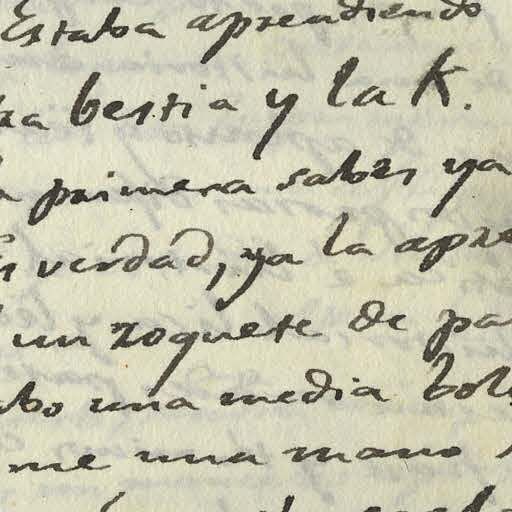 Estaba aprendiendo
bestia y la K.
primera sabes ya
verdad, ya la apre
un zoquete de pa
una media bol
me una mano